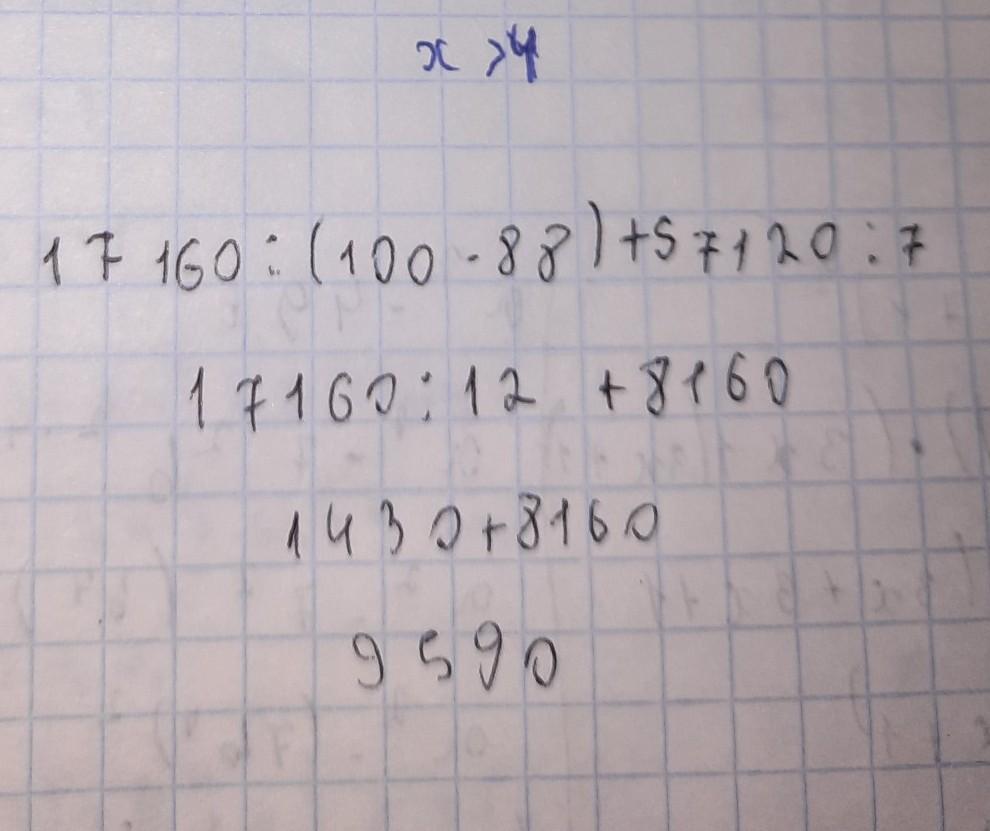 x >4
17160:(100-88)+57120:7
17160:12 +8160
1430+8160
9590